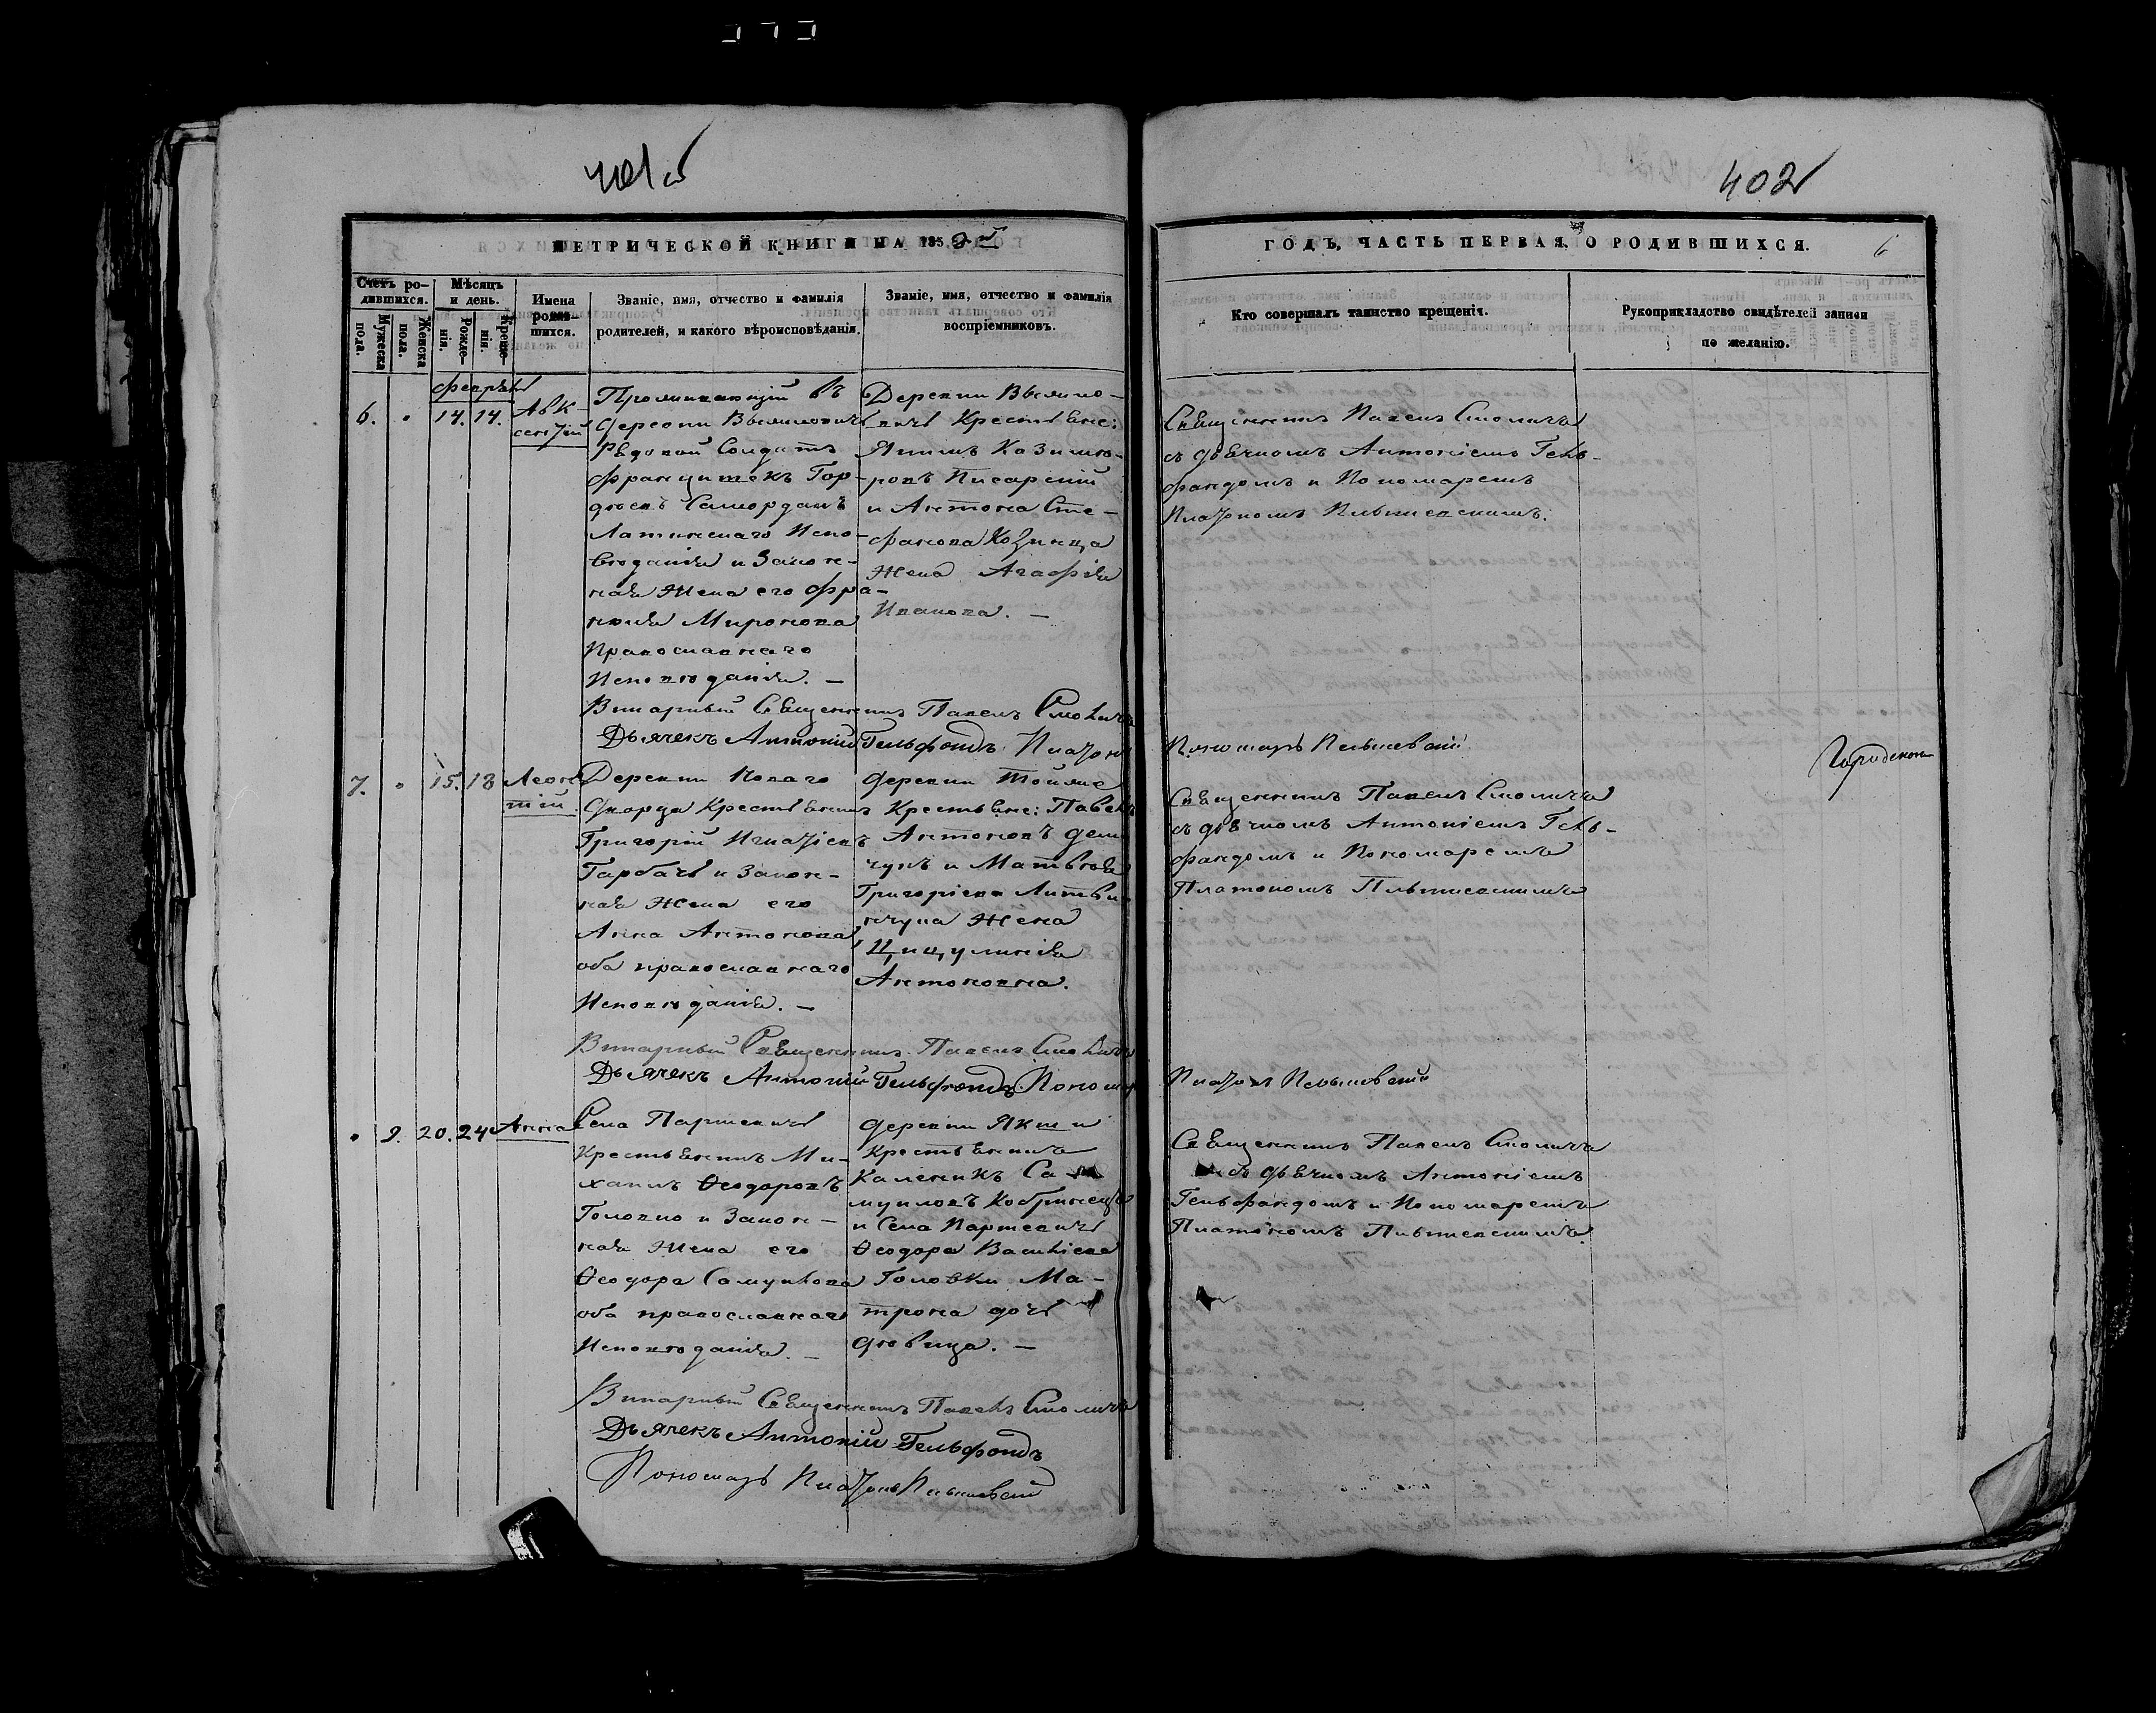 401 об
402
МЕТРИЧЕСКОЙ КНИГИ НА 185
ГОДЪ, ЧАСТЬ ПЕРВАЯ, О РОДИВШИХСЯ.
6
Счетъ родившихся.
Мужеска пола.
Женска пола.
Мѣсяцъ и день.
Рожденія.
Крещенія.
Имена родившихся.
Званіе, имя, отчество и фамилія
родителей, и какого вѣроисповѣданія.
Званіе, имя, отчество и фамилія
воспріемниковъ.
Кто совершалъ таинство крещенія.
Рукоприкладство свидѣтелей записи
по желанію.
6. 14. 14.
Авк-
сентій
Проживающій въ
деревни
Рядовой Солдатъ
Францишекъ Гор-
Латинскаго Испо-
вѣданія и закон-
ная Жена его Фра-
Миронова
Православнаго
Исповѣданія. —
Деревни
Крестьяне:
Якимъ Казими-
ровъ Писарскій
и Антона Сте-
фанова
Жена Агафія
Иванова. —
Священникъ Павелъ Смоличъ
съ дьячкомъ Антоніемъ Гель-
фандомъ и Пономаремъ
Платономъ
Викарный Священникъ Павелъ Смоличъ
Дьячекъ Антоній Гельфондъ Платонъ
Пономарь
7. 15. 18
Леон-
тій
Деревни Новаго
Двора Крестьянинъ
Григорій Игнатіевъ
Гарбачъ и Закон-
ная Жена его
Анна Антонова
оба православнаго
Исповѣданія. —
деревни
Крестьяне: Павелъ
Антоновъ Дем-
чукъ и Матвѣя
Григоріева Литви-
нчука Жена
Цицулинія
Антоновна.
Священникъ Павелъ Смоличъ
съ дьячкомъ Антоніемъ Гель-
фандомъ и Пономаремъ
Платономъ
Викарный Священникъ Павелъ Смоличъ
Дьячекъ Антоній Гельфондъ. Пономарь
Платонъ
9. 20. 24
Анна
Села Паршевичъ
Крестьянинъ Ми-
хаилъ Ѳеодоровъ
Головко и Закон-
ная Жена его
Ѳеодора Самуилова
оба православнаго
Исповѣданія. —
деревни Якши
крестьянинъ
Каленикъ Са-
муиловъ Кобринецъ
и Села Паршевичъ
Ѳеодора Василіева
Головки Ма-
трона дочь
дѣвица. —
Священникъ Павелъ Смоличъ
съ дьячкомъ Антоніемъ
Гельфандомъ и Пономаремъ
Платономъ
Викарный Священникъ Павелъ Смоличъ
Дьячекъ Антоній Гельфондъ
Пономарь Платонъ